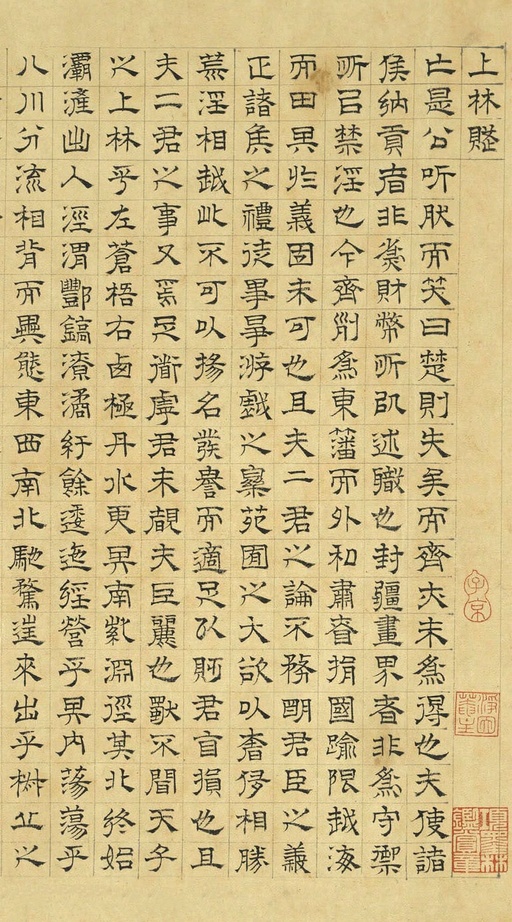 上林賦
亡是公听肰而笑曰楚則失矣而齊亦未為得也夫使諸
侯納貢者非為財幣所以述職也封疆畫界者非為守禦
所以禁淫也今齊列為東藩而外私肅眘捐國踰限越海
而田其於義固未可也且夫二君之論不務明君臣之義
正諸侯之禮徒事爭游戲之樂苑囿之大欲以奢侈相勝
荒淫相越此不可以揚名發譽而適足以貶君自損也且
夫二君之事又焉足道虖君未覩夫巨麗也獨不聞天子
之上林乎左蒼梧右西極丹水更其南紫淵徑其北終始
灞滻出入涇渭酆鎬潦潏紆餘逶迤經營乎其內蕩蕩乎
八川分流相背而異態東西南北馳騖往來出乎椒丘之
子京
淨因菴主
項墨林鑑賞章